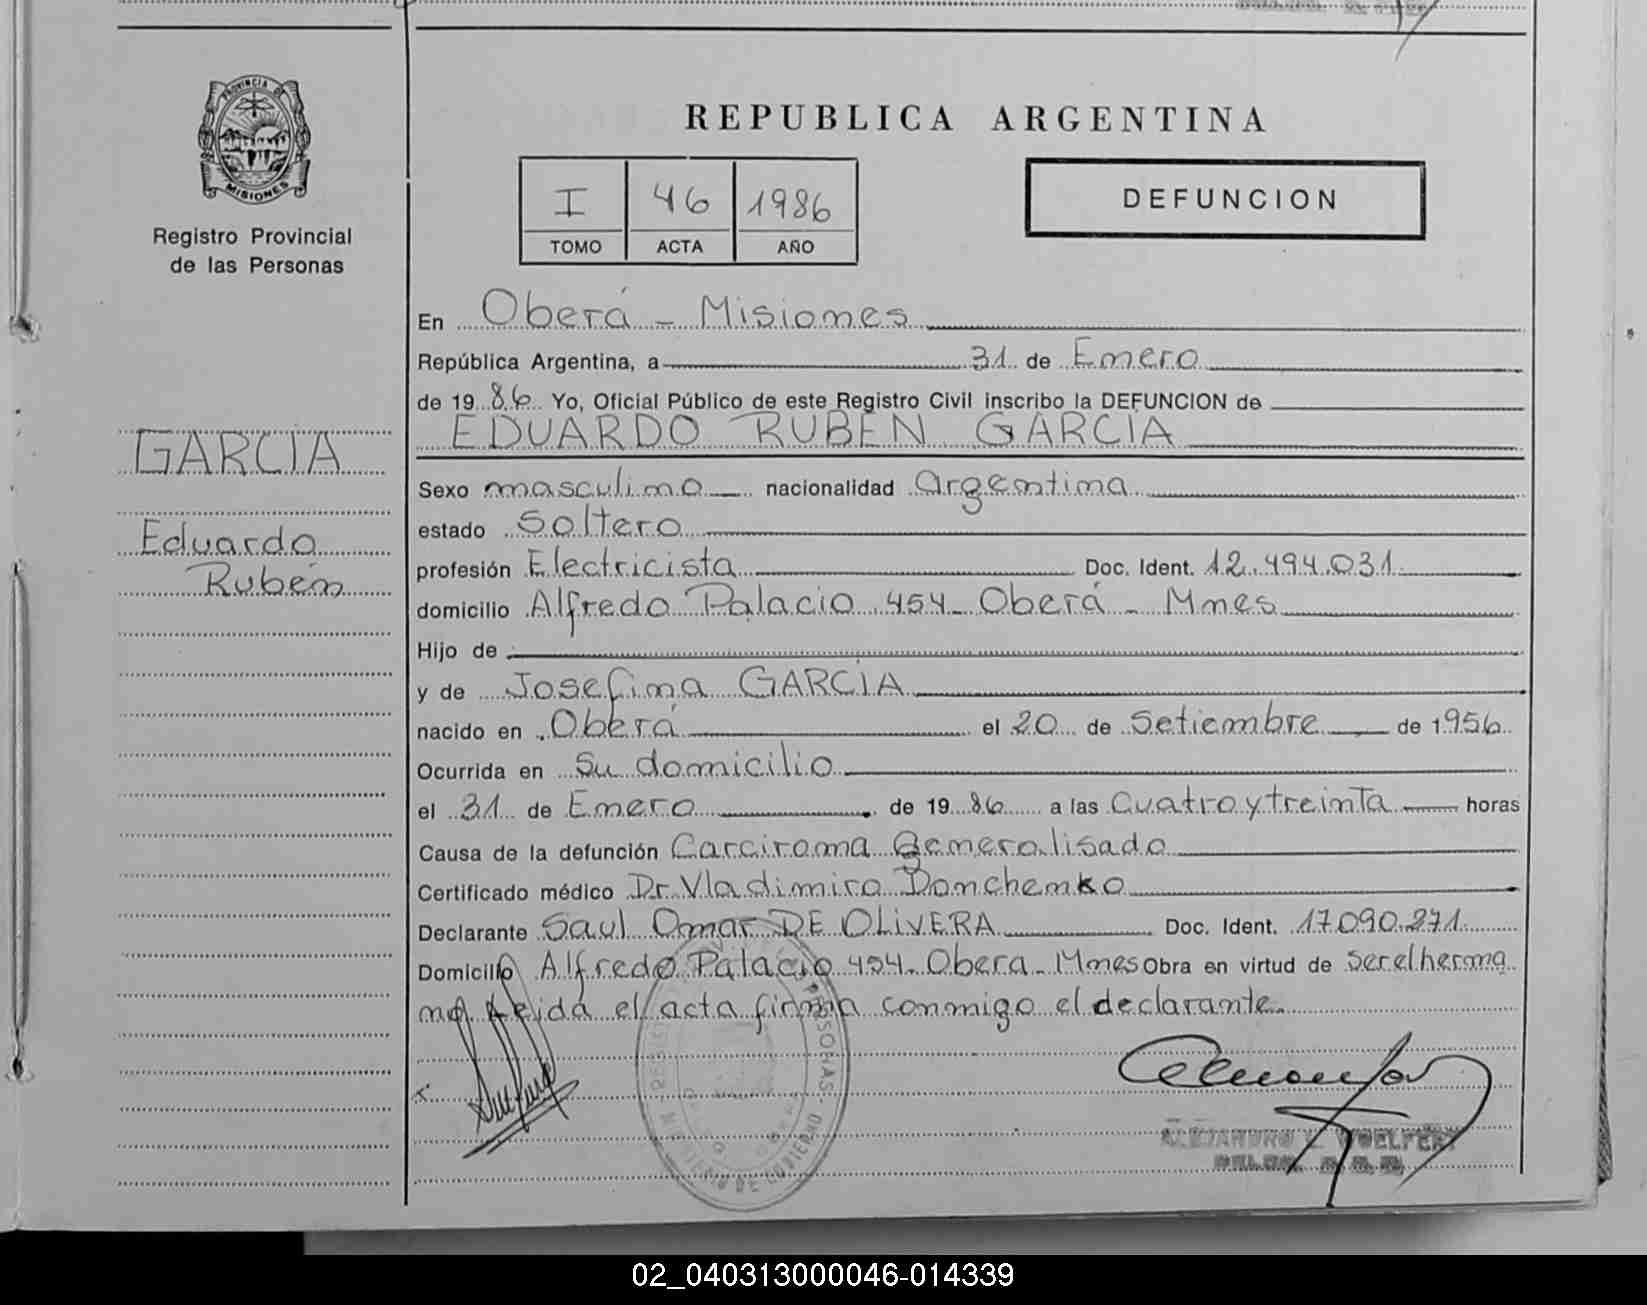 PROVINCIA DE
MISIONES
Registro Provincial
de las Personas
GARCIA
Eduardo
Rubén
REPUBLICA ARGENTINA
I 46 1986
TOMO ACTA AÑO
DEFUNCION
En Oberá - Misiones
República Argentina, a 31 de Enero
de 19 86 Yo, Oficial Público de este Registro Civil inscribo la DEFUNCION de
EDUARDO RUBÉN GARCÍA
Sexo masculino nacionalidad Argentina
estado Soltero
profesión Electricista Doc. Ident. 12.494.031
domicilio Alfredo Palacio 454 - Oberá - Mnes
Hijo de
y de Josefina GARCÍA
nacido en Oberá el 20 de Setiembre de 1956
Ocurrida en Su domicilio
el 31 de Enero de 19 86 a las Cuatro y treinta horas
Causa de la defunción Carciroma generalisado
Certificado médico Dr. Vladimiro Donchenko
Declarante Saul Omar DE OLIVERA Doc. Ident. 17.090.271
Domicilio Alfredo Palacio 454. Obera - Mnes Obra en virtud de ser el herma
no. Leida el acta firma conmigo el declarante.
02_040313000046-014339